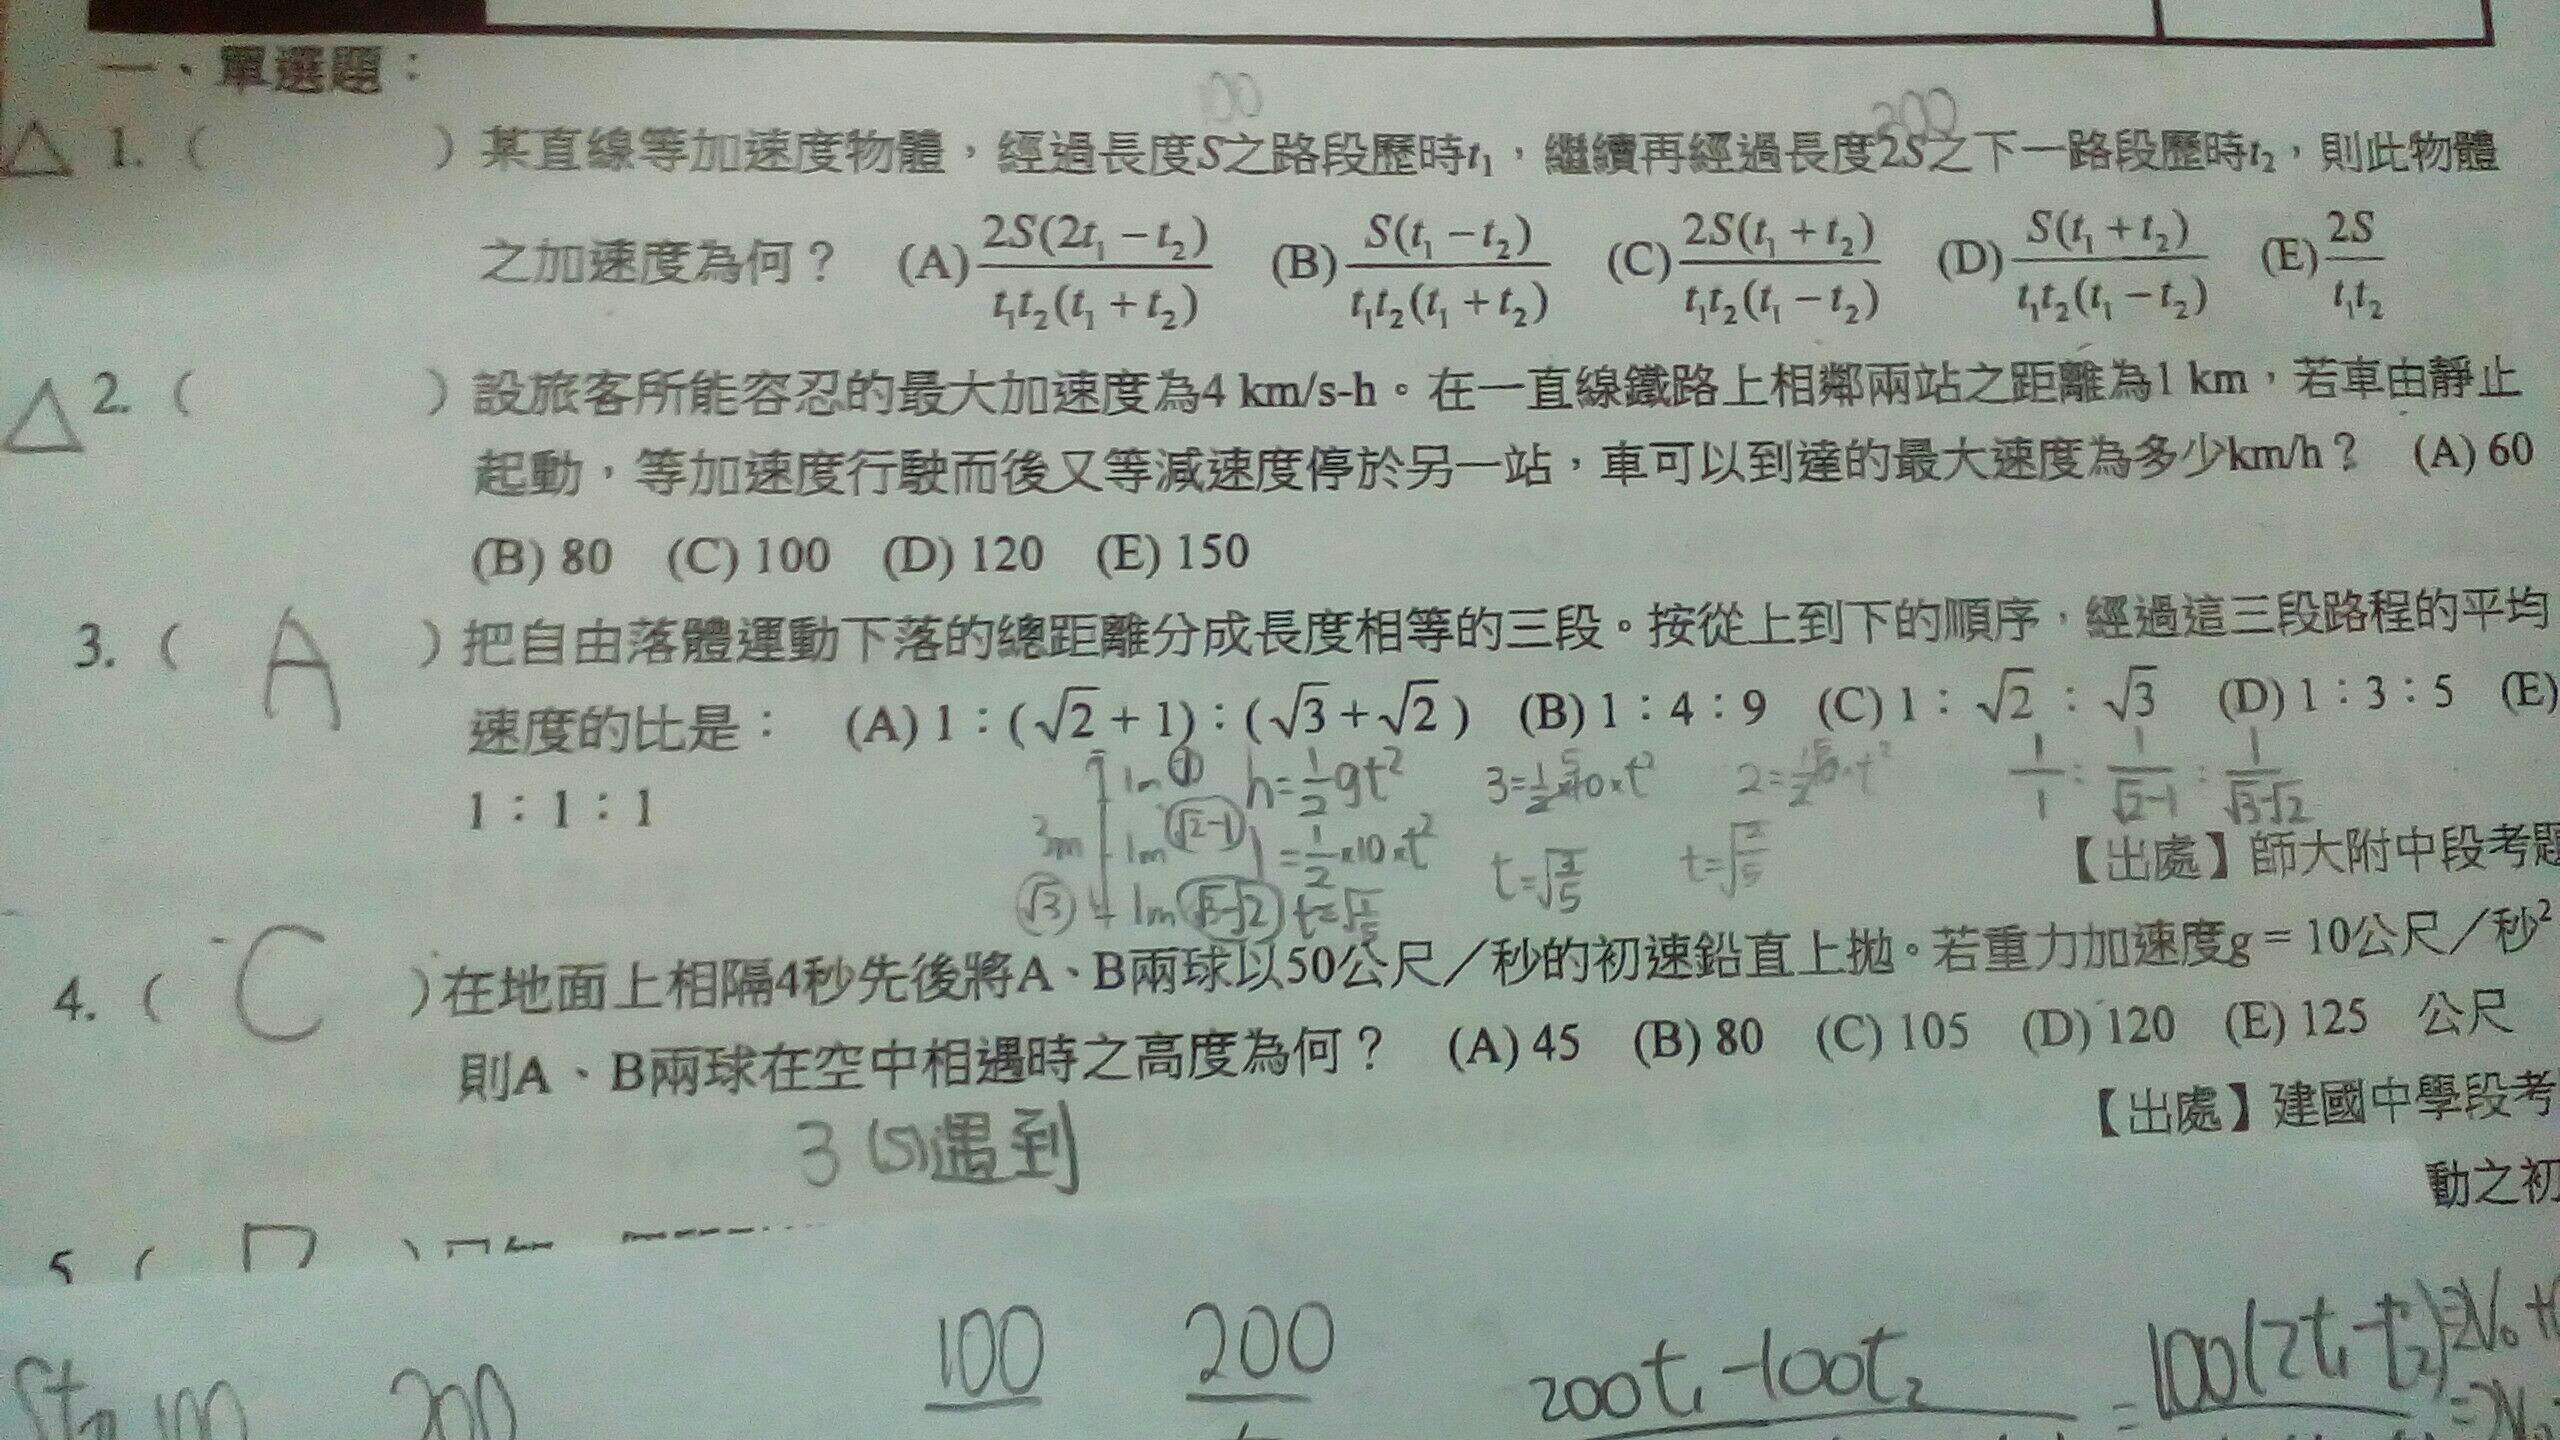 一、單選題：
100 200
△ 1. ( ) 某直線等加速度物體，經過長度S之路段歷時t₁，繼續再經過長度2S之下一路段歷時t₂，則此物體
之加速度為何？ (A) 2S(2t₁－t₂)/t₁t₂(t₁＋t₂) (B) S(t₁－t₂)/t₁t₂(t₁＋t₂) (C) 2S(t₁＋t₂)/t₁t₂(t₁－t₂) (D) S(t₁＋t₂)/t₁t₂(t₁－t₂) (E) 2S/t₁t₂
△ 2. ( ) 設旅客所能容忍的最大加速度為4 km/s-h。在一直線鐵路上相鄰兩站之距離為1 km，若車由靜止
起動，等加速度行駛而後又等減速度停於另一站，車可以到達的最大速度為多少km/h？ (A) 60
(B) 80 (C) 100 (D) 120 (E) 150
3. ( A ) 把自由落體運動下落的總距離分成長度相等的三段。按從上到下的順序，經過這三段路程的平均
速度的比是： (A) 1：(√2＋1)：(√3＋√2) (B) 1：4：9 (C) 1：√2：√3 (D) 1：3：5 (E)
1：1：1
1m ① h=1/2gt² 3=1/2×10×t² 1/1 : 1/(√2-1) : 1/(√3-√2)
3m 1m √2-1 1=1/2×10×t² t=√(3/5) t=√(2/5)
√3 1m √3-√2
【出處】師大附中段考題
4. ( C ) 在地面上相隔4秒先後將A、B兩球以50公尺／秒的初速鉛直上拋。若重力加速度g = 10公尺／秒²
則A、B兩球在空中相遇時之高度為何？ (A) 45 (B) 80 (C) 105 (D) 120 (E) 125 公尺
【出處】建國中學段考
3 (S)遇到
動之初
5 (
100 200 200t₁-100t₂ = 100(2t₁-t₂)
100 200